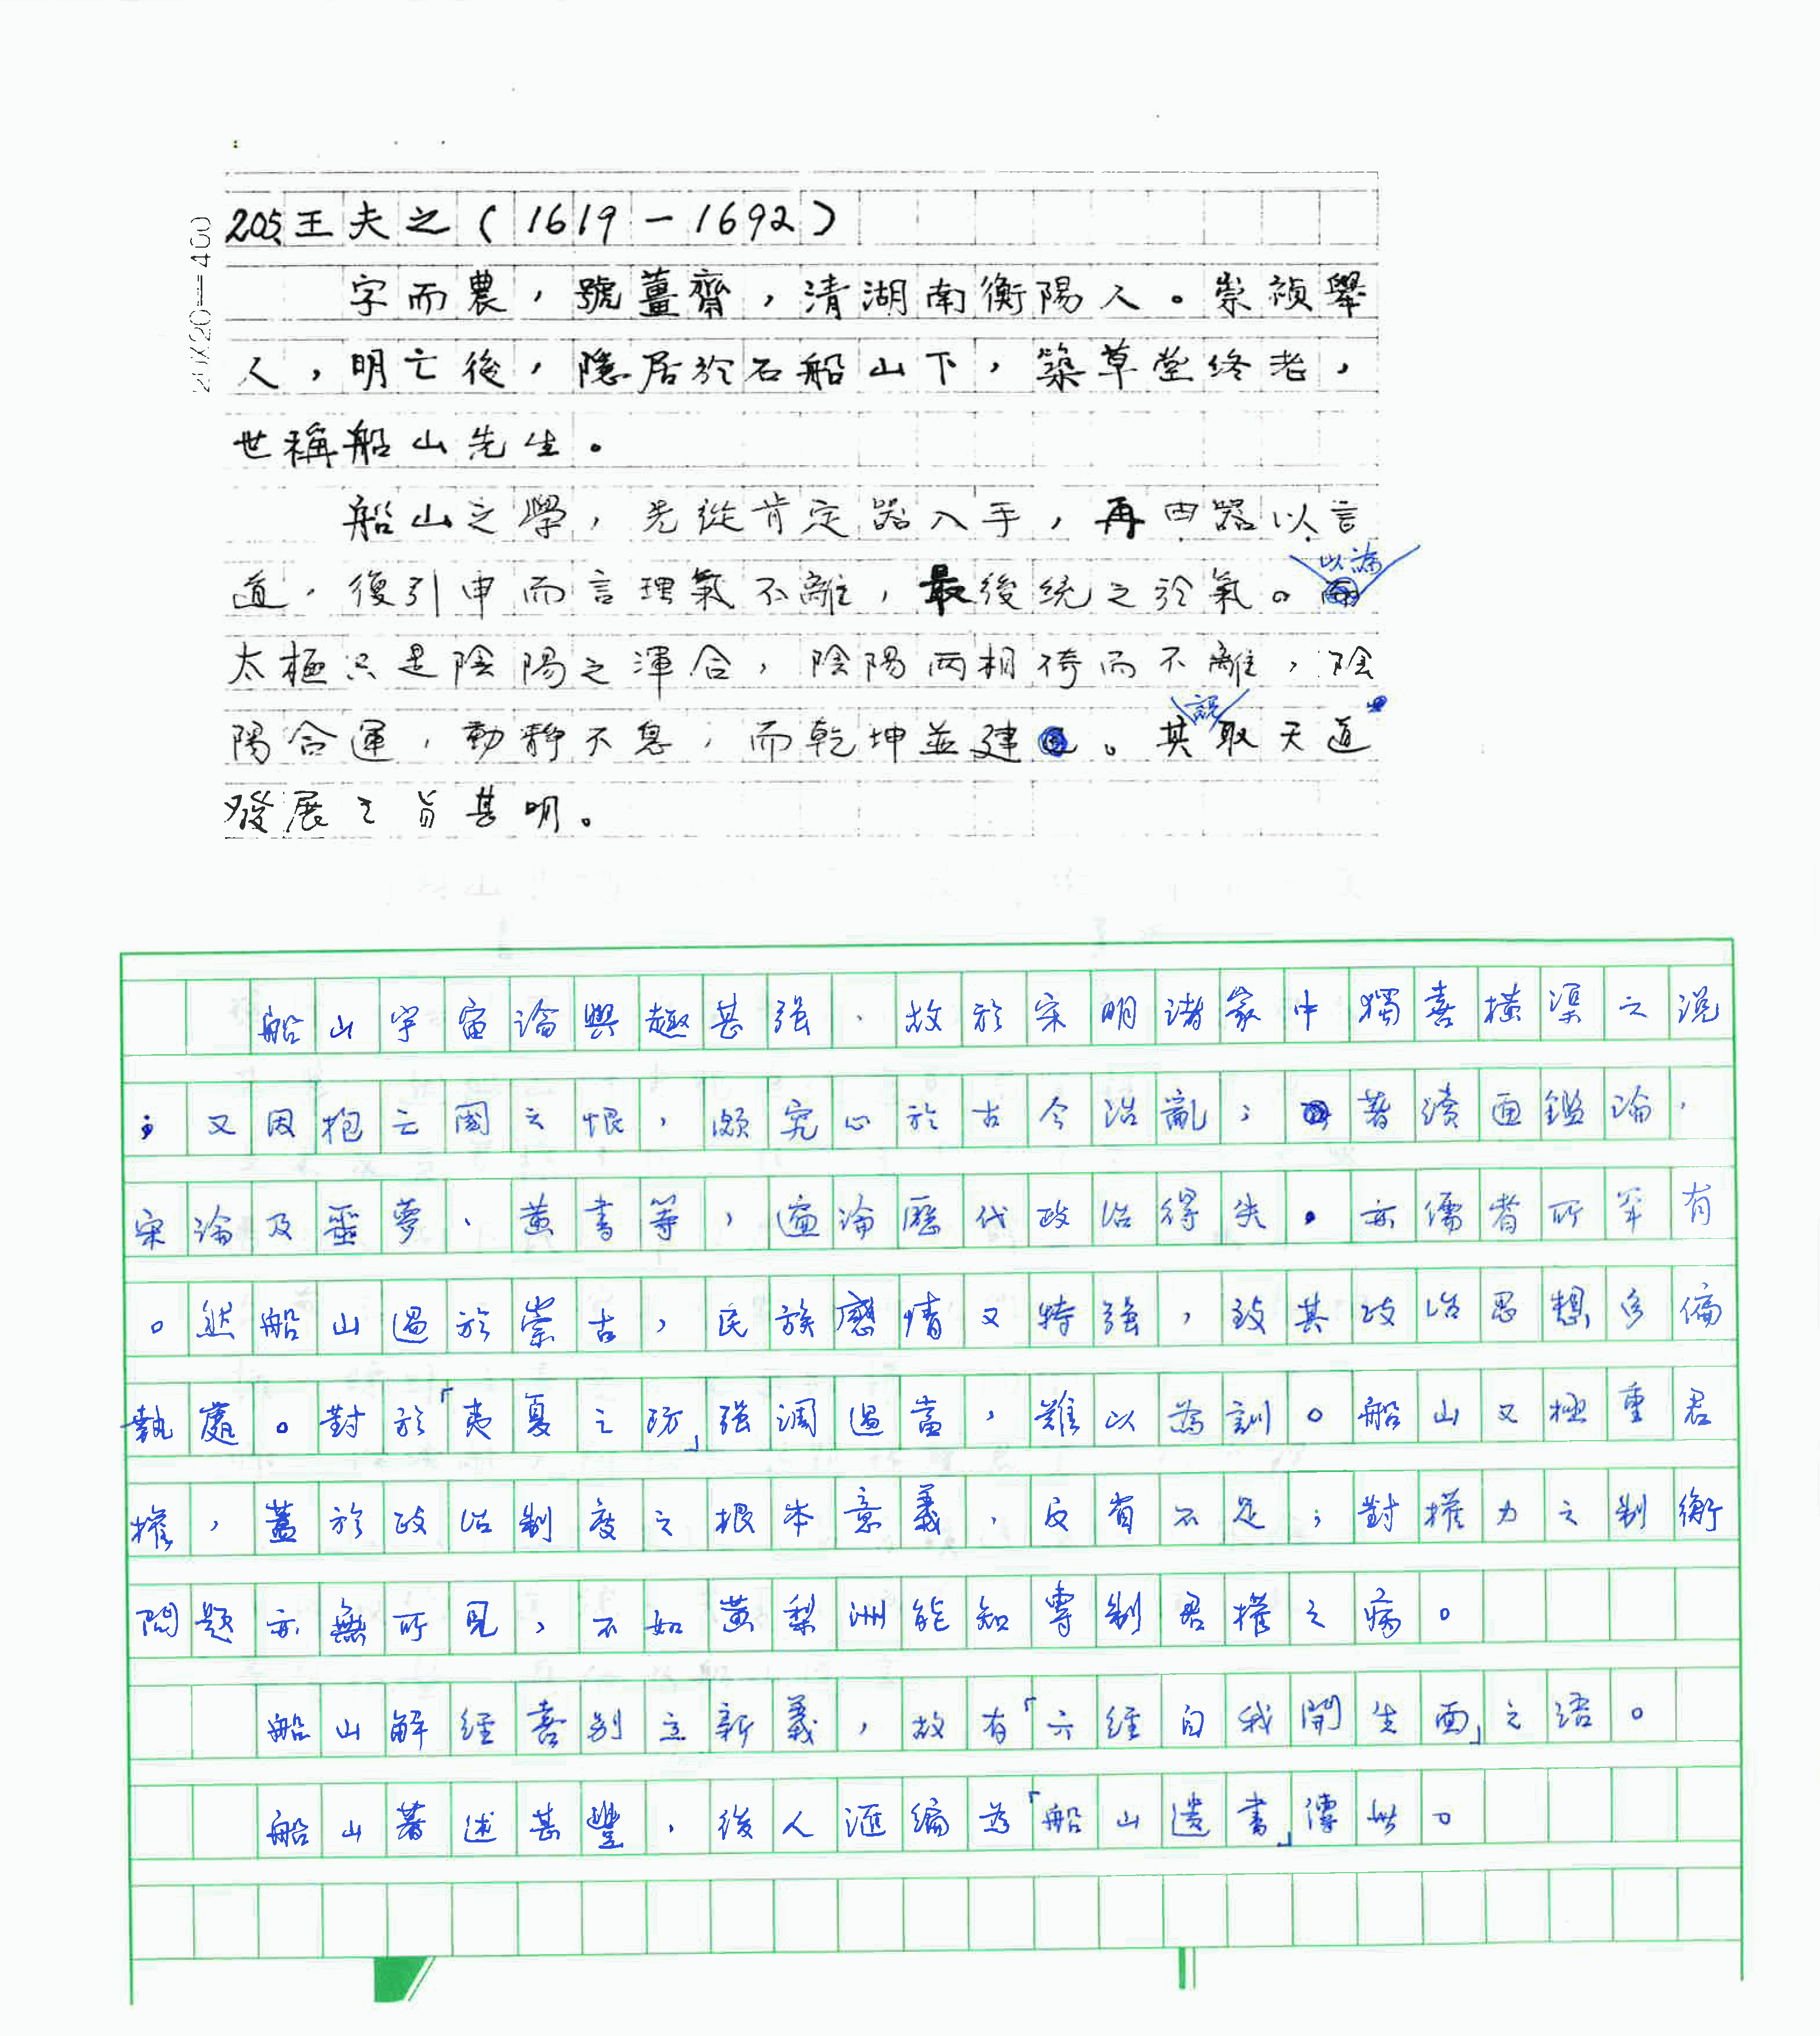 205.王夫之(1619-1692)
字而農，號薑齋，清湖南衡陽人。崇禎舉
人，明亡後，隱居於石船山下，築草堂終老，
世稱船山先生。
船山之學，先從肯定器入手，再由器以言
道，復引申而言理氣不離，最後統之於氣。以論
太極只是陰陽之渾合，陰陽兩相倚而不離，陰
陽合運，動靜不息，而乾坤並建。其說取天道
發展之旨甚明。
25X20=400
船山宇宙論興趣甚強，故於宋明諸家中獨喜橫渠之說
；又因抱亡國之恨，頗究心於古今治亂；著讀通鑑論，
宋論及噩夢、黃書等，遍論歷代政治得失。亦儒者所罕有
。然船山過於崇古，民族感情又特強，致其政治思想多偏
執處。對於「夷夏之防」強調過當，難以為訓。船山又極重君
權，蓋於政治制度之根本意義，反省不足；對權力之制衡
問題亦無所見，不如黃梨洲能知專制君權之病。
船山解經喜別立新義，故有「六經自我開生面」之語。
船山著述甚豐，後人滙編為「船山遺書」傳世。